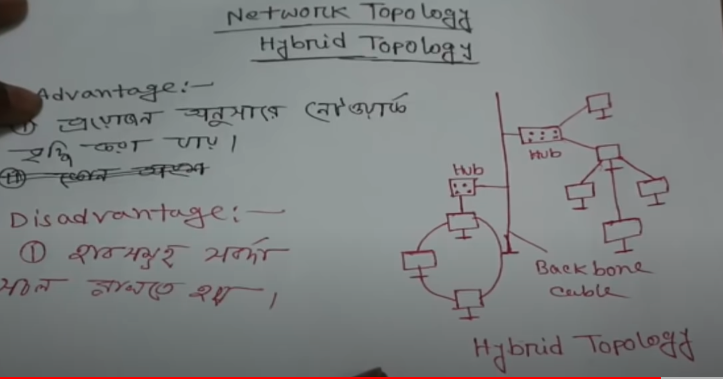 Network Topology
Hybrid Topology
Advantage:-
① প্রয়োজন অনুসারে নেটওয়ার্ক
বৃদ্ধি করা যায়।
Disadvantage:-
① হাবসমুহ সর্বদা
সচল রাখতে হয়।
Hub
Hub
Backbone
cable
Hybrid Topology